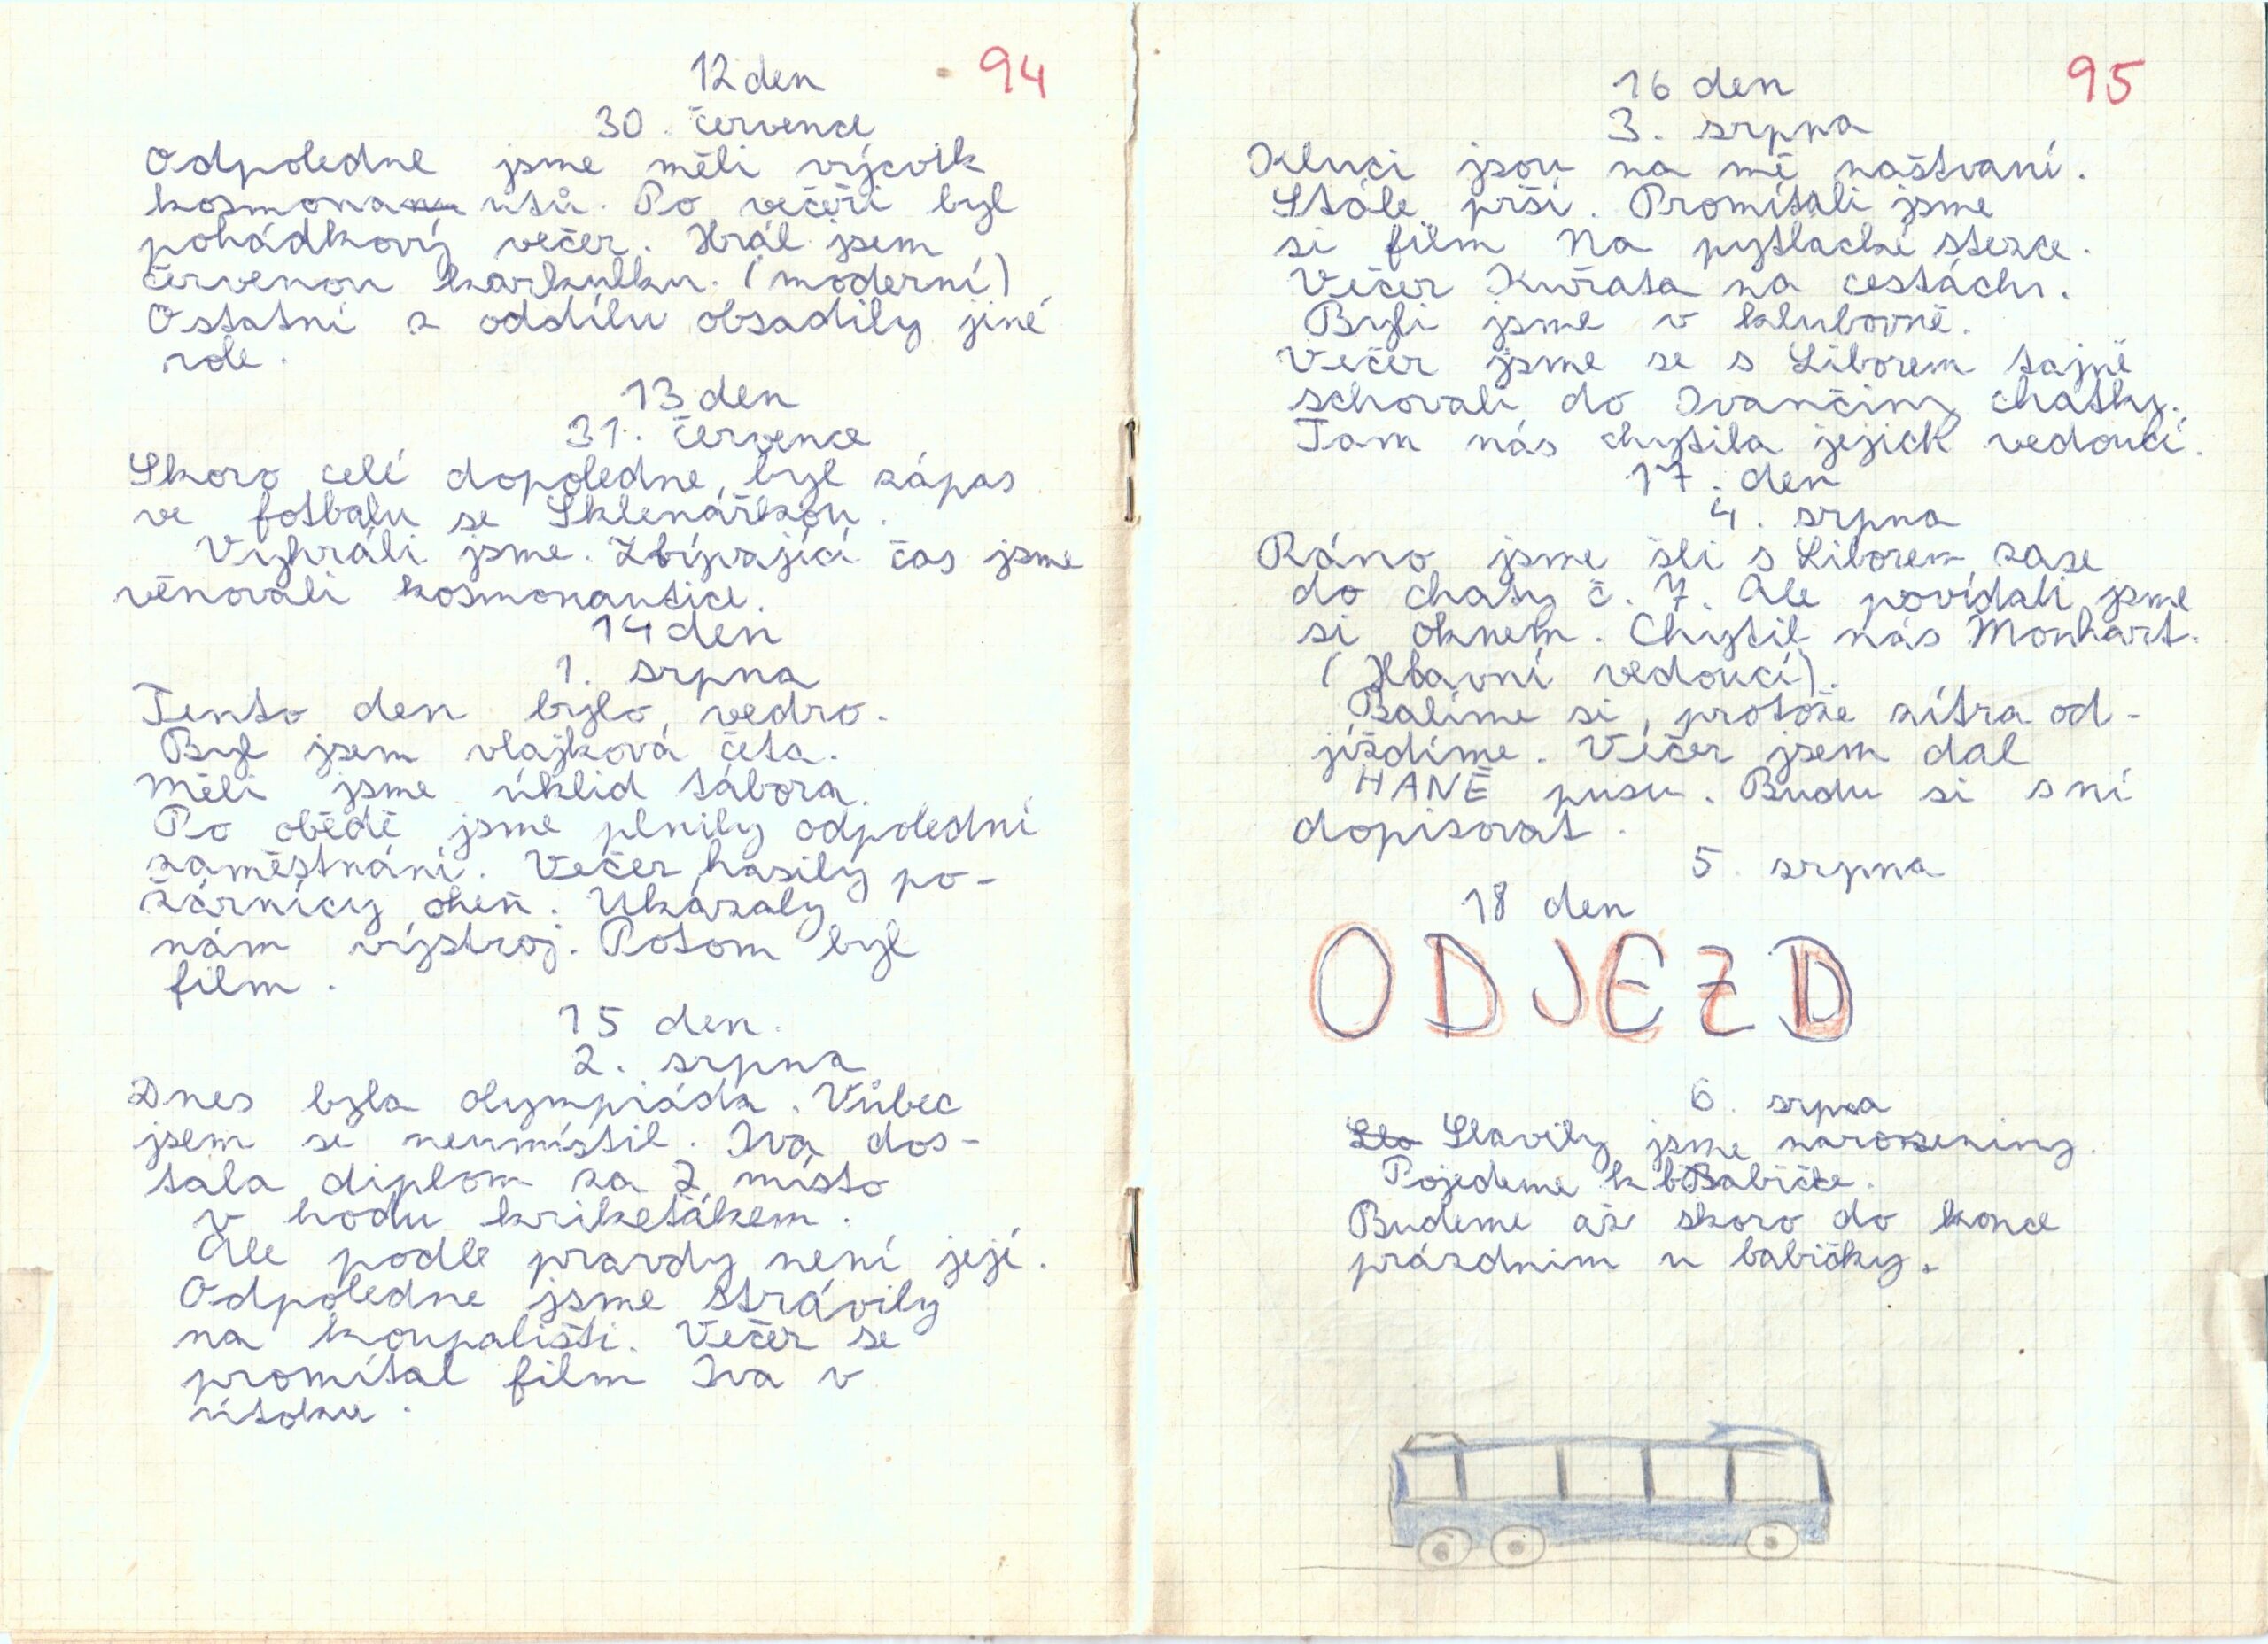 94
12 den
30. července
Odpoledne jsme měli výcvik
kosmona utů. Po večeři byl
pohádkový večer. Hrál jsem
červenou karkulku. (moderní)
Ostatní z oddílu obsadily jiné
role.
13 den
31. července
Skoro celé dopoledne byl zápas
ve fotbalu se Sklenářkou.
Vyhráli jsme. Zbívající čas jsme
věnovali kosmonautice.
14 den
1. srpna
Tento den bylo vedro.
Byl jsem vlajková četa.
Měli jsme úklid tábora.
Po obědě jsme plnily odpolední
zaměstnání. Večer hasily po-
žárnicy oheň. Ukázaly
nám výstroj. Potom byl
film.
15 den.
2. srpna
Dnes byla olympiáda. Vůbec
jsem se neumístil. Iva dos-
tala diplom za 2 místo
v hodu kriketákem.
Ale podle pravdy není její.
Odpoledne jsme strávily
na koupališti. Večer se
promítal film Iva v
útoku.
95
16 den
3. srpna
Kluci jsou na mě naštvaní.
Stále prší. Promítali jsme
si film Na pytlácké stezce.
Večer Kuřata na cestách.
Byli jsme v klubovně.
Večer jsme se s Liborem tajně
schovali do Ivančiny chatky.
Tam nás chytila jejich vedoucí.
17. den
4. srpna
Ráno jsme šli s Liborem zase
do chaty č. 7. Ale povídali jsme
si oknem. Chytil nás Monhart.
(Hlavní vedoucí).
Balíme si, protože zítra od-
jíždíme. Večer jsem dal
HANĚ pusu. Budu si s ní
dopisovat.
5. srpna
18 den
ODJEZD
6. srpna
Slo Slavily jsme narozeniny.
Pojedeme k bBabičce.
Budeme až skoro do konce
prázdnim u babičky.